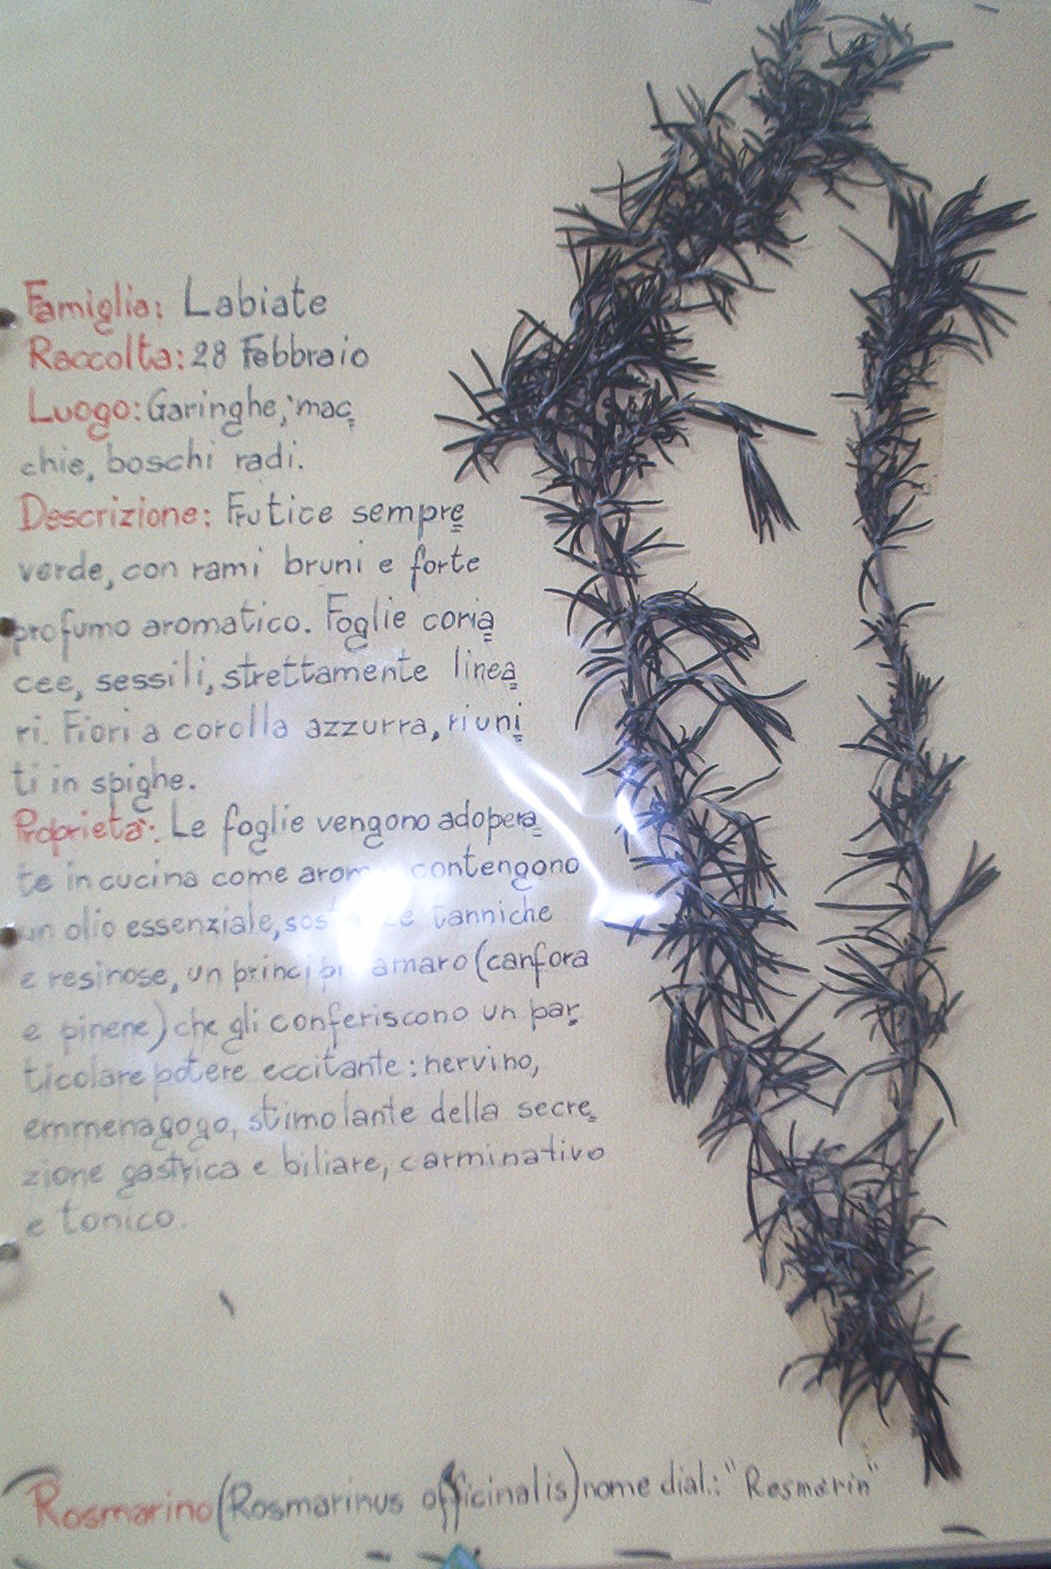 Famiglia: Labiate
Raccolta: 28 Febbraio
Luogo: Garinghe, mac
chie, boschi radi.
Descrizione: Frutice sempre
verde, con rami bruni e forte
profumo aromatico. Foglie coria
cee, sessili, strettamente linea
ri. Fiori a corolla azzurra, riuni
ti in spighe.
Proprietà: Le foglie vengono adopera
te in cucina come contengono
un olio essenziale, tanniche
e resinose, un amaro (canfora
e pinene) che gli conferiscono un par
ticolare potere eccitante: nervino,
emmenagogo, stimolante della secre
zione gastrica e biliare, carminativo
e tonico.
Rosmarino (Rosmarinus officinalis) nome dial.: "Rosmarin"